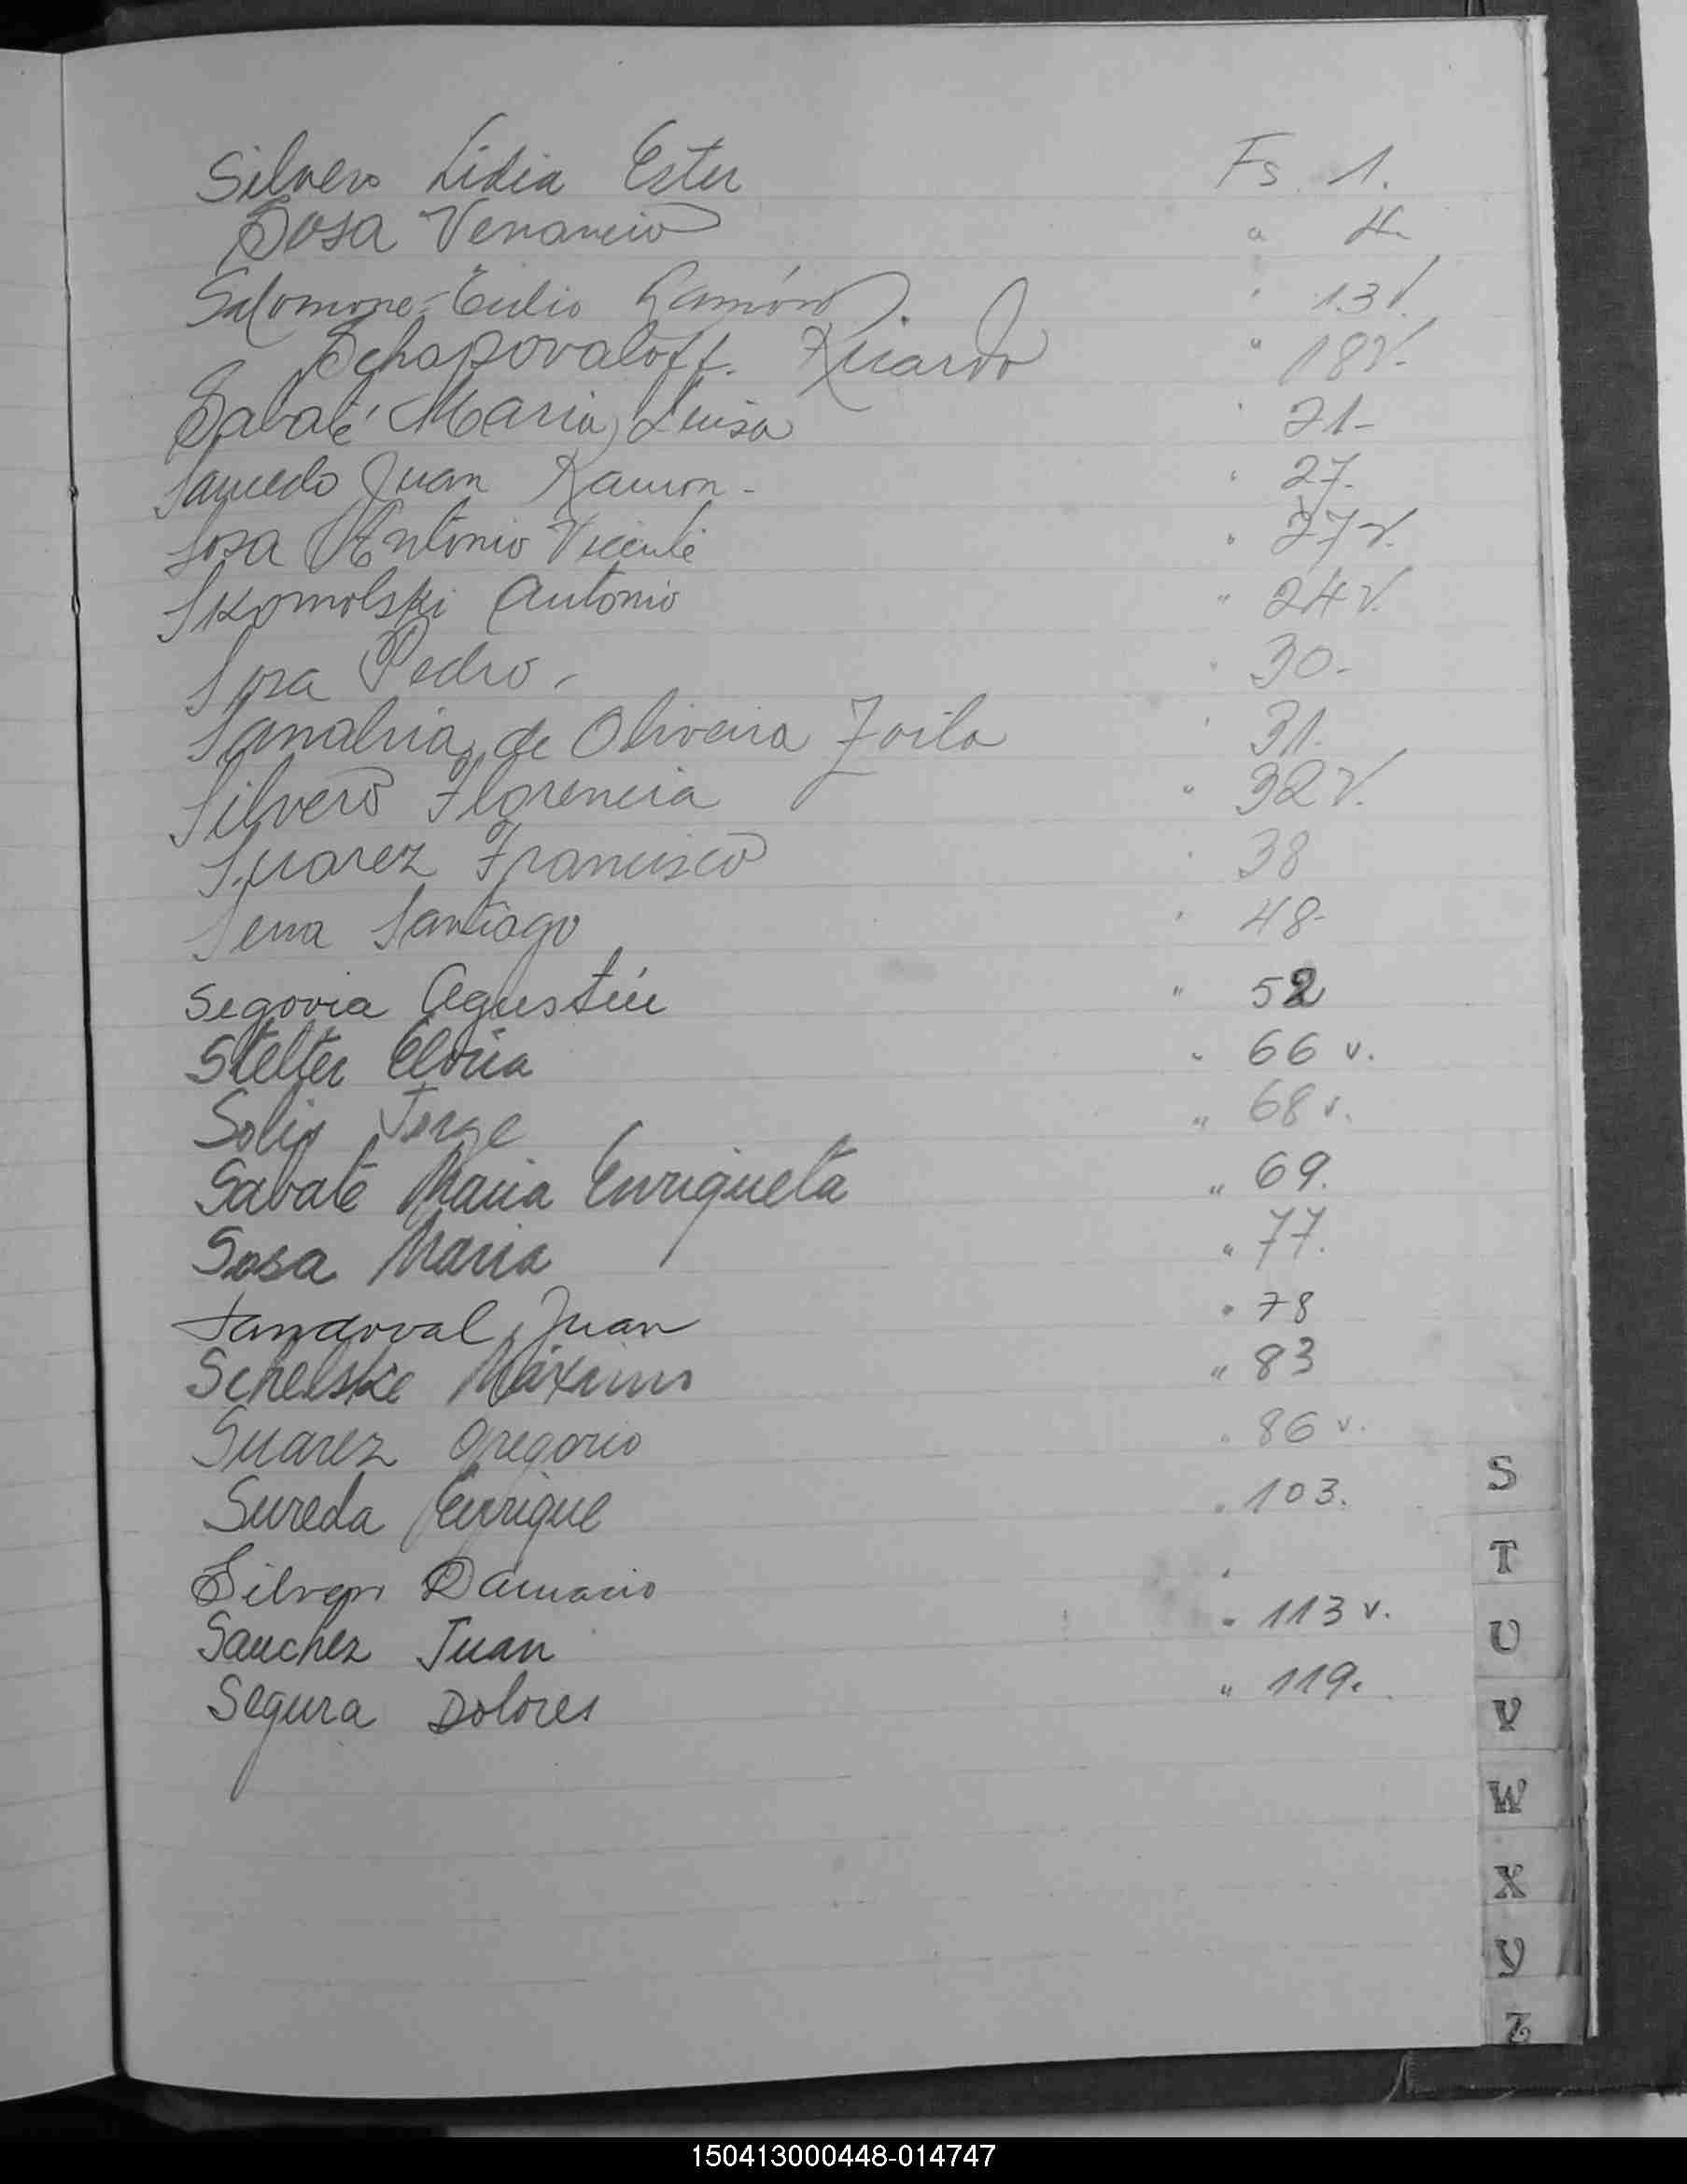 Silvero Lidia Ester Fs. 1.
Sosa Venancio " 4.
Salomone Ramón " 13 v.
Schapovaloff. Ricardo " 18 v.
Sabaté Maria Luisa " 21-
Juan Ramon - " 27.
Sosa Antonio Vicente " 27 v.
Skomolski Antonio " 24 v.
Sosa Pedro - " 30-
Sanabria de Oliveira Zoila " 31.
Silvero Florencia " 32 v.
Suarez Francisco " 38
Serra Santiago " 48-
Segovia Agustín " 52
Stelter " 66 v.
Solis Jorge " 68 v.
Sabaté Maria Enriqueta " 69.
Sosa Maria " 77.
Sandoval Juan " 78
Schelske Máximo " 83
Suarez Gregorio " 86 v.
Sureda Enrique " 103.
Silvero Damacio "
Sanchez Juan " 113 v.
Segura Dolores " 119.
S
T
U
V
W
X
Y
Z
150413000448-014747